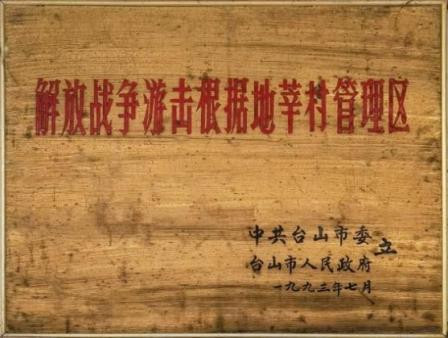 解放战争游击根据地莘村管理区
中共台山市委
台山市人民政府
立
一九九三年七月